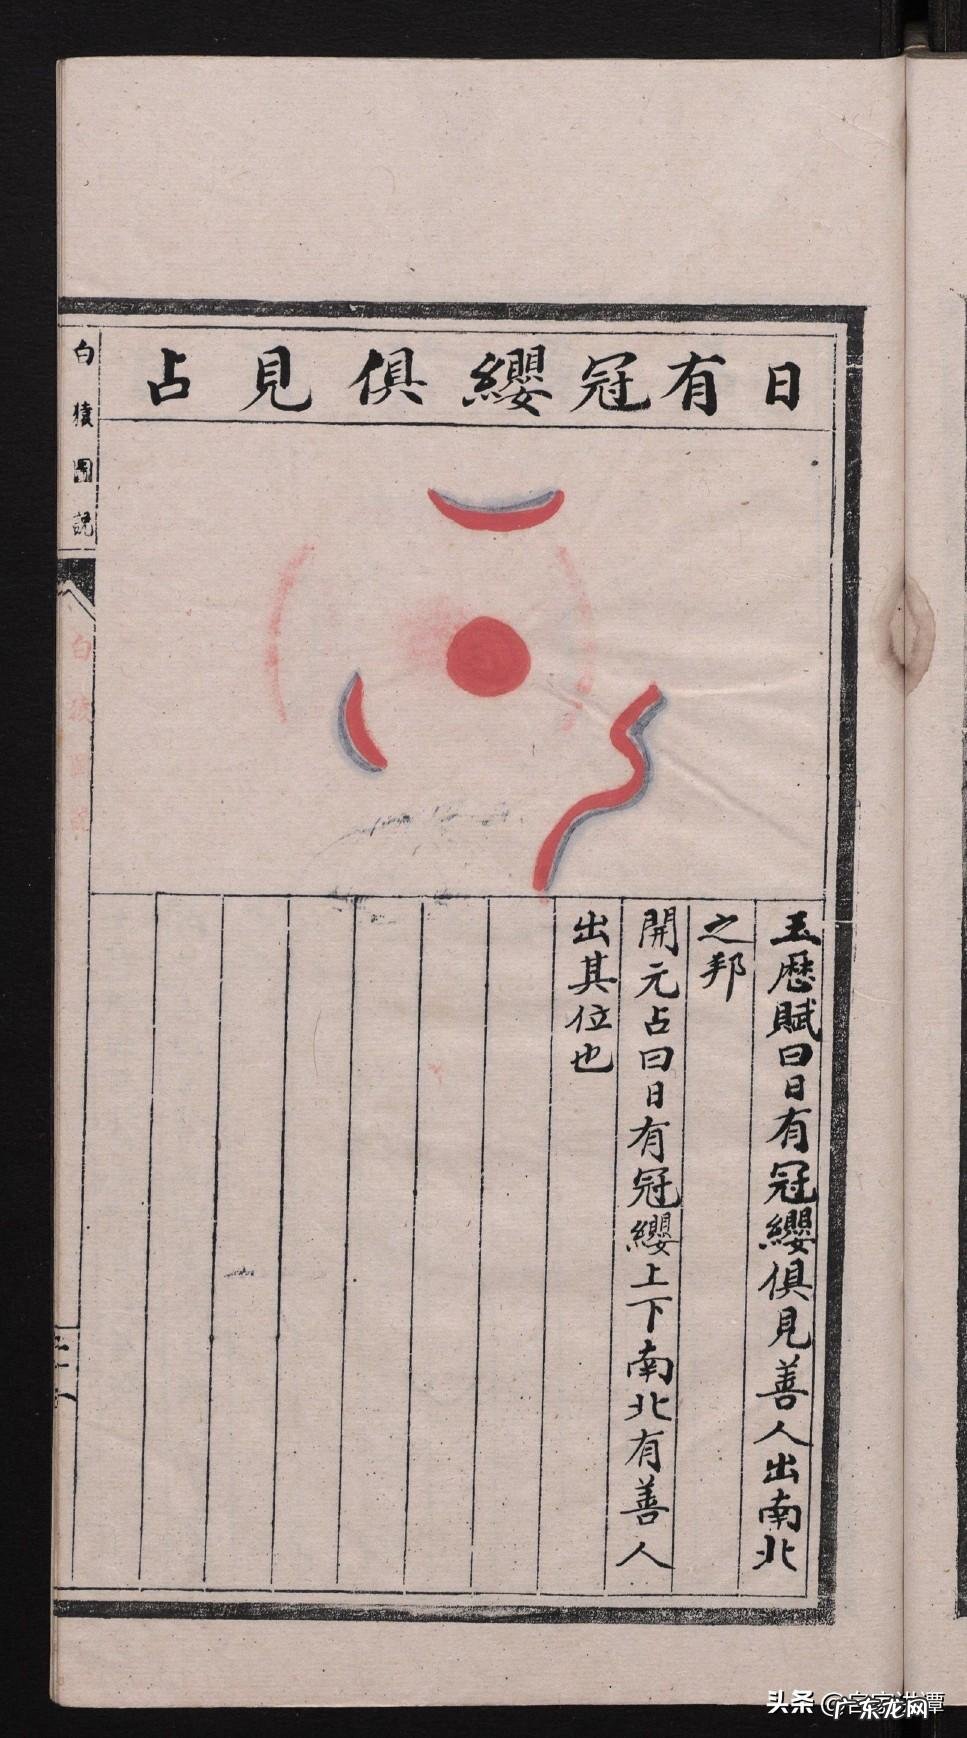 日有冠纓俱見占
玉歷賦曰日有冠纓俱見善人出南北
之邦
開元占曰日有冠纓上下南北有善人
出其位也
白猿圖説
頭条
广东龙网